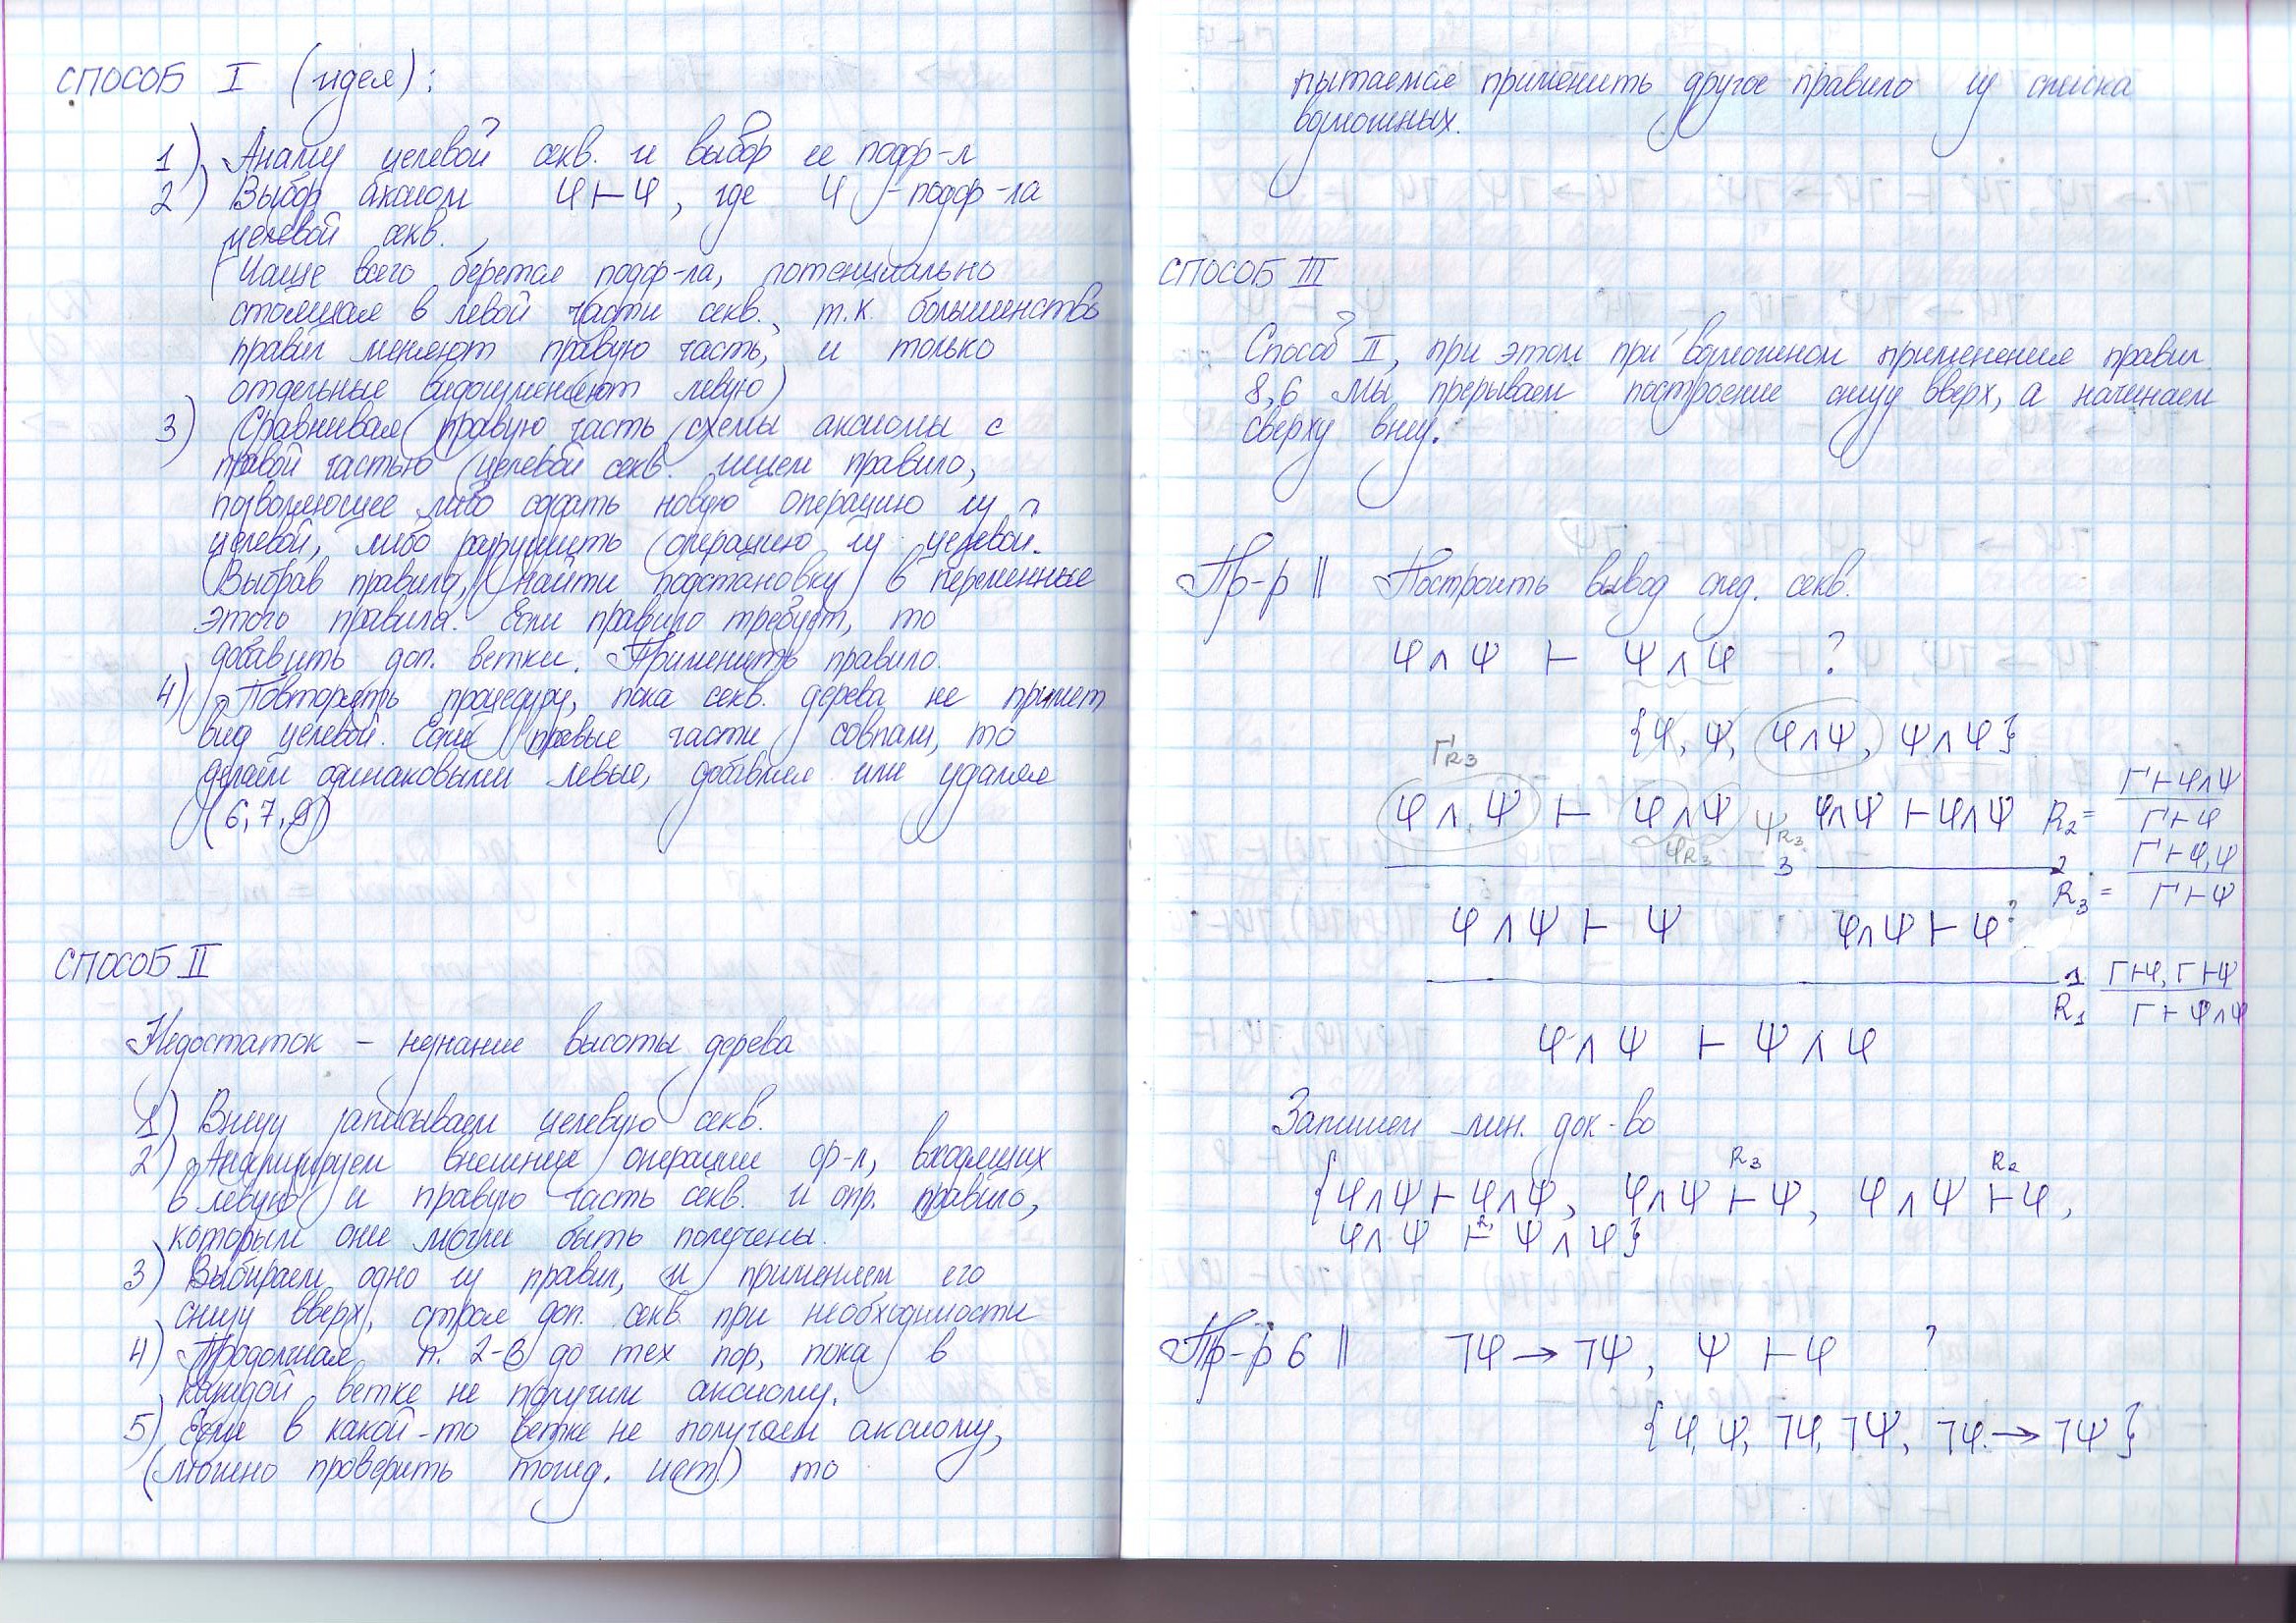 СПОСОБ I (идея):
1) Анализ целевой секв. и выбор ее подф-л
2) Выбор аксиом φ⊢φ, где φ - подф-ла
целевой секв.
(Чаще всего берется подф-ла, потенциально
стоящая в левой части секв., т.к. большинство
правил меняют правую часть, и только
отдельные видоизменяют левую)
3) Сравнивая правую часть схемы аксиомы с
правой частью целевой секв. ищем правило,
позволяющее либо создать новую операцию из
целевой, либо разрушить операцию из целевой.
Выбрав правило, найти подстановку в переменные
этого правила. Если правило требует, то
добавить доп. ветки. Применить правило.
4) Повторять процедуру, пока секв. дерева не примет
вид целевой. Если правые части совпали, то
делаем одинаковыми левые, добавляя или удаляя
(6,7,9)
СПОСОБ II
Недостаток - незнание высоты дерева
1) Внизу записываем целевую секв.
2) Анализируем внешние операции ф-л, входящих
в левую и правую часть секв. и опр. правило,
которым они могли быть получены.
3) Выбираем одно из правил, и применяем его
снизу вверх, строя доп. секв. при необходимости
4) Продолжая п. 2-3 до тех пор, пока в
каждой ветке не получим аксиому.
5) Если в какой-то ветке не получаем аксиому,
(можно проверить тожд. ист.) то
пытаемся применить другое правило из списка
возможных.
СПОСОБ III
Способ II, при этом при возможном применении правил
8,6 мы прерываем построение снизу вверх, а начинаем
сверху вниз.
Пр-р || Построить вывод след. секв.
φ∧ψ ⊢ ψ∧φ ?
{φ, ψ, φ∧ψ, ψ∧φ}
Γ R3
φ∧ψ ⊢ φ∧ψ φ∧ψ ⊢ φ∧ψ R2 = Γ⊢φ∧ψ
φR3 ψR3 Γ⊢φ
3 2
φ∧ψ ⊢ ψ φ∧ψ ⊢ φ? R3 = Γ⊢ψ
1 R1 Γ⊢φ, Γ⊢ψ
Γ⊢φ∧ψ
φ∧ψ ⊢ ψ∧φ
Запишем лин. док-во
R3 R2
{φ∧ψ⊢φ∧ψ, φ∧ψ⊢ψ, φ∧ψ⊢φ,
φ∧ψ ⊢ ψ∧φ}
Пр-р 6 || ¬φ→¬ψ, ψ ⊢φ ?
{φ, ψ, ¬φ, ¬ψ, ¬φ→¬ψ}